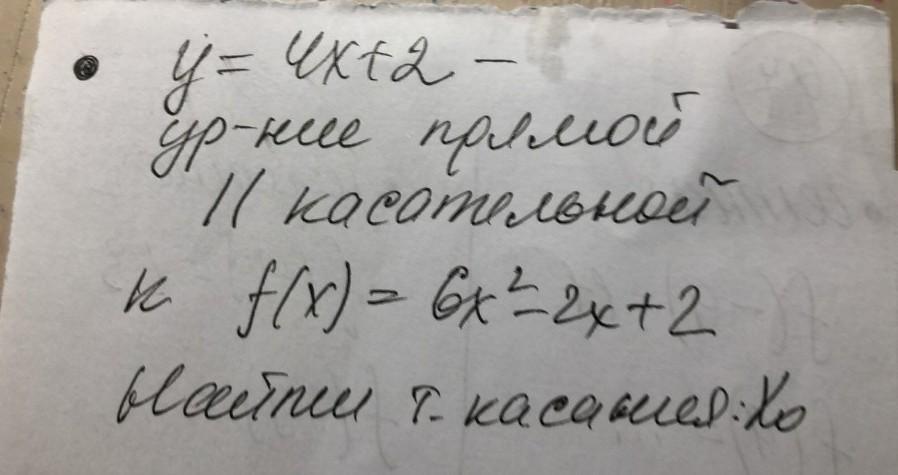 y = 4x+2 –
ур-ние прямой
|| касательной
к f(x) = 6x²-2x+2
Найти т. касания: x₀